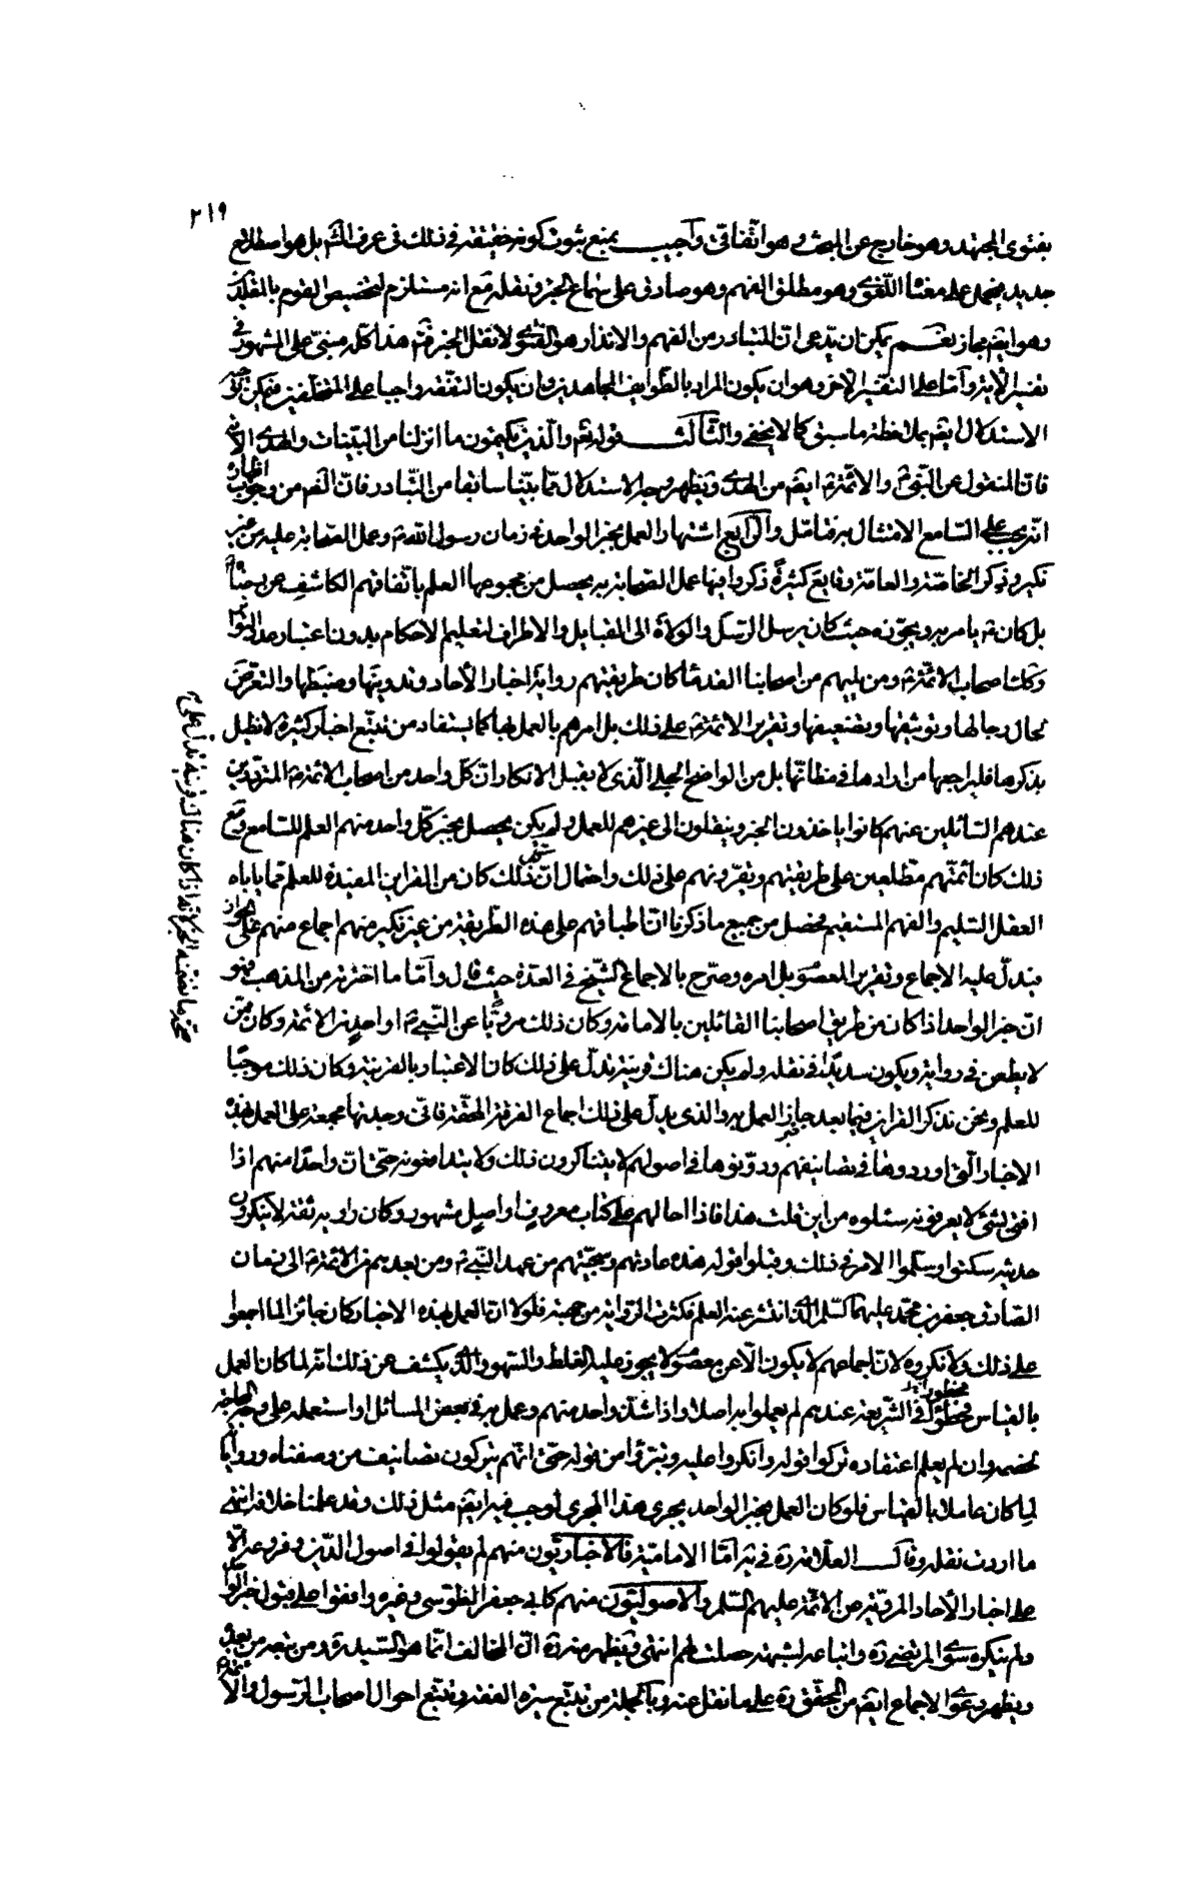 ٢١٩
بفتوى المجتهد وهو خارج عن البحث وهو اتّفاقىّ وأجيب بمنع ثبوت كونه حقيقة في ذلك فى عرف الش بل هو اصطلاح
جديد فيحمل على معناه اللّغوى وهو مطلق الفهم وهو صادق على سماع الخبر ونقله مع انه مستلزم لتخصيص القوم بالمقلّدين
وهو ايضً مجاز نعم يمكن ان يدعى انّ المتبادر من الفهم والانذار هو الفتوى لا نقل الخبر فت هذا كلّه مبنىّ على المشهور في
تفسير الآية وأمّا على التفسير الآخر وهو ان يكون المراد بالطّوايف المجاهدين وان يكون التفقه واجبا على المتخلّفين فيمكن
الاستدلال ايضً بملاحظة ما سبق كما لا يخفى والثّالث قوله تعً والّذين يكتمون ما انزلنا من البيّنات والهدى الآية
فانّ المنقول عن النّبىّ ص والائمّة ع ايضً من الهدى ويظهر وجه الاستدلال ممّا بيّنّا سابقا من التّبادر فانّ الفهم من وجوب اظهاره
انّه يجب على السّامع الامتثال به فتامّل والرّابع اشتهار العمل بخبر الواحد في زمان رسول اللّه ص وعمل الصّحابة عليه من غير
نكير وذكر الخاصّة والعامّة وقايع كثيرة ذكروا فيها عمل الصّحابة به يحصل من مجموعها العلم باتّفاقهم الكاشف عن رضاه
بل كان ص يامر به ويجوّزه حيث كان يرسل الرّسل والولاة الى القبايل والاطراف لتعليم الاحكام بدون اعتبار عدد التّواتر
وكك اصحاب الائمّة ع ومن يليهم من اصحابنا القدماء كان طريقتهم رواية اخبار الآحاد وتدوينها وضبطها والتعرّض
لحال رجالها وتوثيقها وتضعيفها وتقرير الائمّة ع على ذلك بل امرهم بالعمل بها كما يستفاد من تتبّع اخبار كثيرة لا نطيل
بذكرها فليراجعها من ارادها في مظانّها بل من الواضح الجلى الّذى لا يقبل الانكار انّ كلّ واحد من اصحاب الائمّة ع المتردّدين
عندهم السّائلين عنهم كانوا ياخذون الخبر وينقلون الى غيرهم للعمل ولم يكن يحصل بخبر كلّ واحد منهم العلم للسّامع ومع
ذلك كان أئمّتهم مطّلعين على طريقتهم ويقرّونهم على ذلك واحتمال انّ ذلك كان من القراين المفيدة للعلم ممّا ياباه
العقل السّليم والفهم المستقيم فحصل من جميع ما ذكرنا انّ اطباقهم على هذه الطّريقة من غير نكير منهم اجماع منهم على الجواز
فيدلّ عليه الاجماع وتقرير المعصوم بل امره وصرّح بالاجماع الشّيخ فى العدّة حيث قال وأمّا ما اخترته من المذهب فهو
انّ خبر الواحد اذا كان من طريق اصحابنا القائلين بالامامة وكان ذلك مرويّا عن النّبي ص او واحد من الائمّة وكان ممّن
لا يطعن في روايته ويكون سديدًا في نقله ولم يكن هناك قرينة تدلّ على ذلك كان الاعتبار بالقرينة وكان ذلك موجبًا
للعلم ونحن نذكر القراين فيما بعد جاز العمل به والذى يدلّ على ذلك اجماع الفرقة المحقّة فانّى وجدتها مجمعة على العمل بهذه
الاخبار الّتى اوردوها في تصانيفهم ودوّنوها فى اصولهم لا يتناكرون ذلك ولا يتدافعونه حتّى انّ واحدًا منهم اذا
افتى بشئ لا يعرفونه سئلوه من اين قلت هذا فاذا احالهم على كتاب معروف او اصل مشهور وكان راويه ثقة لا ينكرون
حديثه سكتوا وسلّموا الامر في ذلك وقبلوا قوله هذه عادتهم وسجيّتهم من عهد النّبى ص ومن بعدهم من الائمّة ع الى زمان
الصّادق جعفر بن محمّد عليهما السّلم الّذى انتشر عنه العلم فكثرت الرّواية من جهته فلولا انّ العمل بهذه الاخبار كان جائزا لما اجمعوا
على ذلك ولانكروه لانّ اجماعهم لا يكون الّا عن معصوم لا يجوز عليه الغلط والسّهو والّذى يكشف عن ذلك انّه لمّا كان العمل
بالقياس محظورًا في الشّريعة عندهم لم يعملوا به اصلا واذا شذّ واحد منهم وعمل به في بعض المسائل او استعمله على وجه المحاجّة
لخصمه وان لم يعلم اعتقاده تركوا قوله وانكروا عليه وتبرّؤا من قوله حتّى انّهم يتركون تصانيف من وصفناه ورواياته
لما كان عاملا بالقياس فلو كان العمل بخبر الواحد يجرى هذا المجرى لوجب فيه ايضً مثل ذلك وقد علمنا خلافه انتهى
ما اردت نقله وقال العلّامة ره في يه امّا الاماميّة فالاخباريّون منهم لم يعوّلوا فى اصول الدّين وفروعه الّا
على اخبار الآحاد المرويّة عن الائمّة عليهم السّلم والاصوليّون منهم كابى جعفر الطّوسى وغيره وافقوا على قبول خبر الواحد
ولم ينكره سوى المرتضى ره واتباعه لشبهة حصلت لهم انتهى ويظهر منه ره انّ المخالف انّما هو السّيّد ره ومن تبعه من بعده
ويظهر دعوى الاجماع ايضً من المحقّق ره على ما نقل عنه وبالجملة من تتبّع سيرة الفقه وتتبّع احوال اصحاب الرّسول والائمّة ع
صحّة ما تضمّنه الخبر لانّه اذا كان هناك قرينة تدلّ على